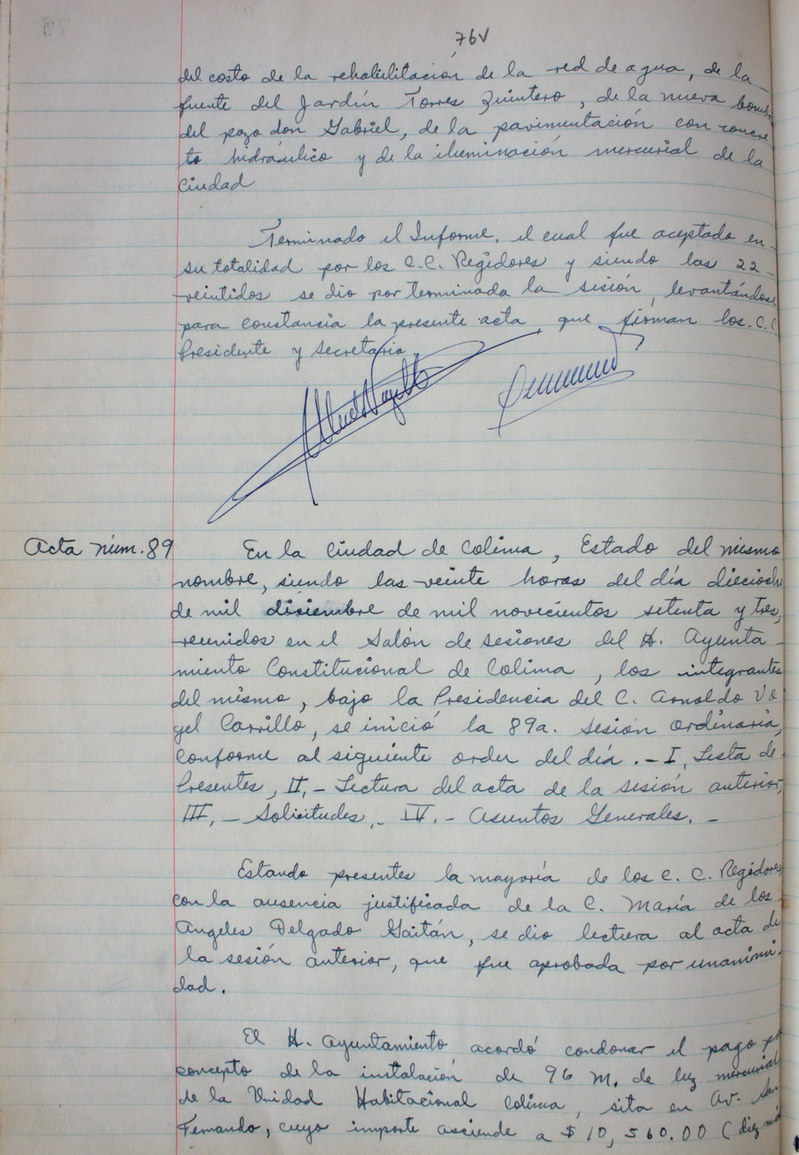 76V
del costo de la rehabilitación de la red de agua, de la
fuente del Jardín Torres Quintero, de la nueva bomb
del pozo don Gabriel, de la pavimentación con concre
to hidráulico y de la iluminación mercurial de la
ciudad
Terminado el Informe, el cual fue aceptado en
su totalidad por los C.C. Regidores y siendo las 22
veintidos se dio por terminada la sesión, levantándose
para constancia la presente acta, que firman los C.C
Presidente y Secretario
Acta núm. 89
En la Ciudad de Colima, Estado del mismo
nombre, siendo las veinte horas del día dieciocho
de mil diciembre de mil novecientos setenta y tres,
reunidos en el Salón de sesiones del H. Ayunta
miento Constitucional de Colima, los integrantes
del mismo, bajo la Presidencia del C. Arnoldo Vo
gel Carrillo, se inició la 89a. Sesión Ordinaria,
conforme al siguiente orden del día. - I, Lista de
Presentes, II, - Lectura del acta de la sesión anterior,
III, - Solicitudes, - IV. - Asuntos Generales. -
Estando presentes la mayoría de los C. C. Regidores
con la ausencia justificada de la C. María de los
Angeles Delgado Gaitán, se dio lectura al acta de
la sesión anterior, que fue aprobada por unanimi-
dad.
El H. Ayuntamiento acordó condonar el pago po
concepto de la instalación de 96 M. de luz mercurial
de la Unidad Habitacional Colima, sita en Av. San
Fernando, cuyo importe asciende a $ 10,560.00 (diez mil